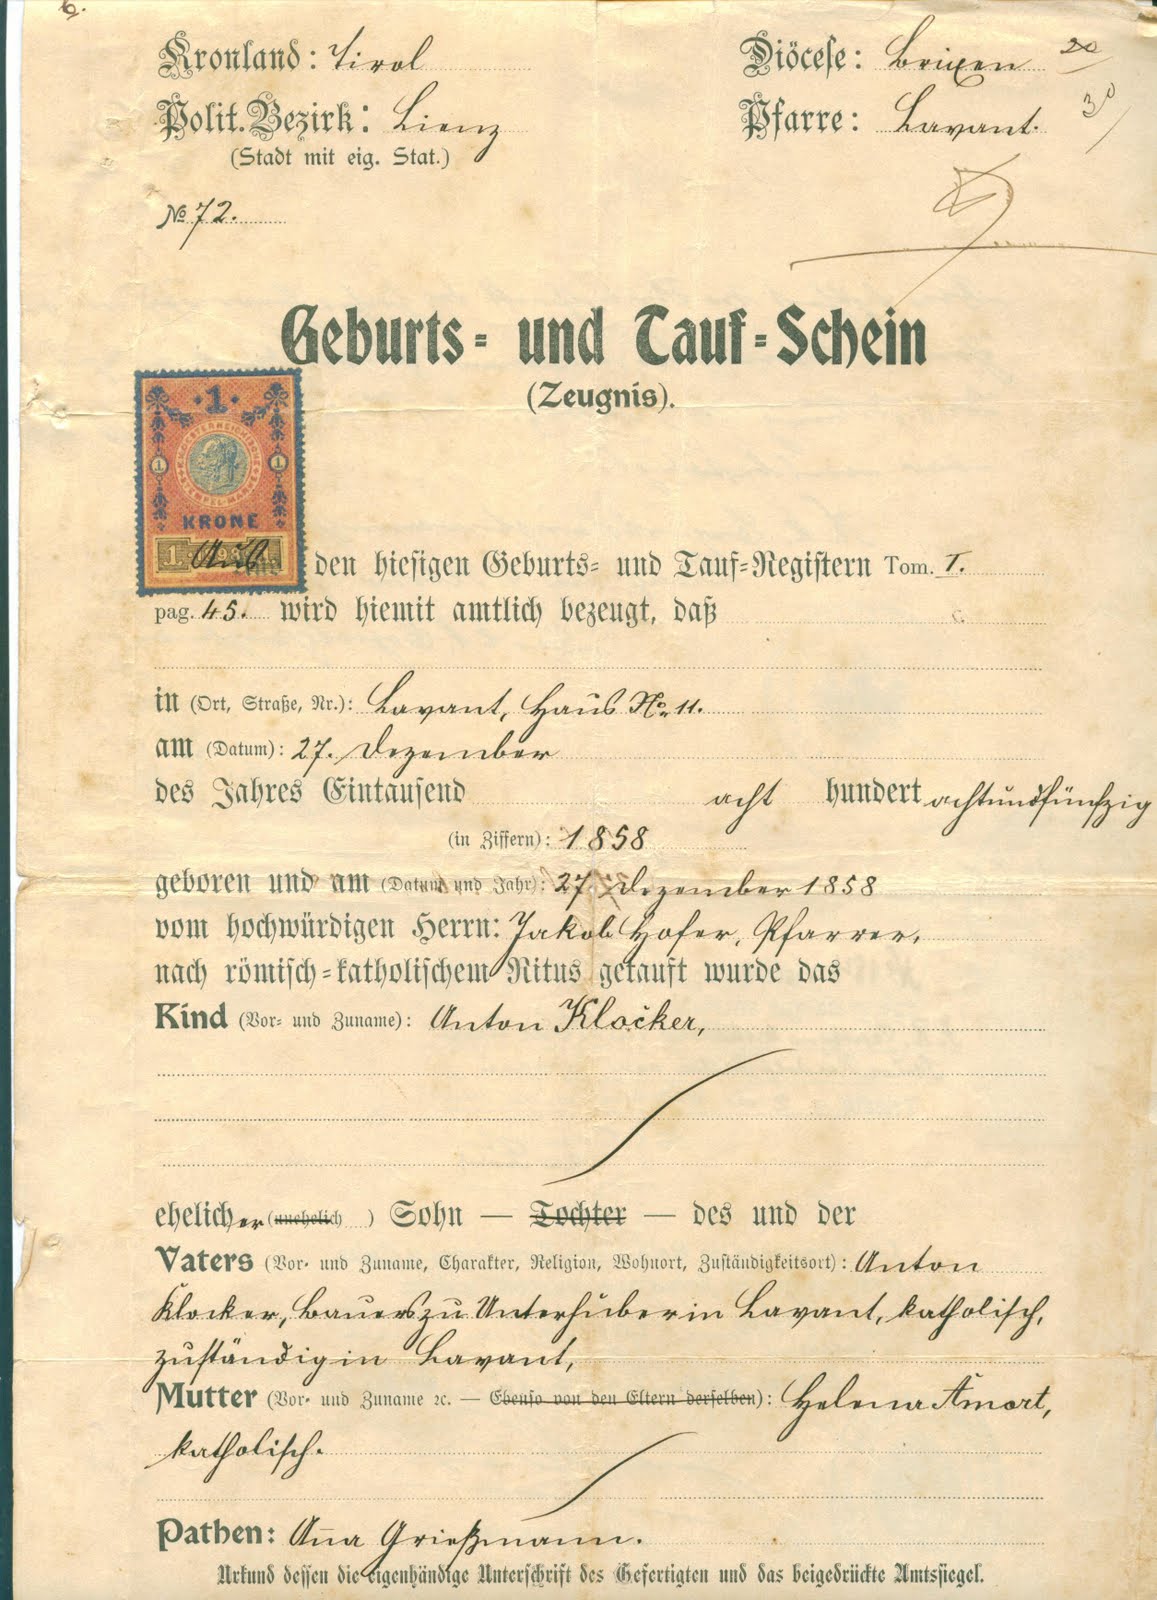 Kronland: Tirol
Diöcese: Brixen 20
Polit. Bezirk: Lienz
Pfarre: Lavant. 30
(Stadt mit eig. Stat.)
No 72.
Geburts- und Tauf-Schein
(Zeugnis).
1
1 1
KRONE
Aus den hiesigen Geburts- und Tauf-Registern Tom. I.
pag. 45. wird hiemit amtlich bezeugt, daß
in (Ort, Straße, Nr.): Lavant, Haus No. 11.
am (Datum): 27. Dezember
des Jahres Eintausend acht hundert achtundfünfzig
(in Ziffern): 1858
geboren und am (Datum und Jahr): 27. Dezember 1858
vom hochwürdigen Herrn: Jakob Hofer, Pfarrer,
nach römisch-katholischem Ritus getauft wurde das
Kind (Vor- und Zuname): Anton Klocker,
ehelicher (unehelich ) Sohn — Tochter — des und der
Vaters (Vor- und Zuname, Charakter, Religion, Wohnort, Zuständigkeitsort): Anton
Klocker, Bauers zu Unterhuber in Lavant, katholisch,
zuständig in Lavant,
Mutter (Vor- und Zuname ec. — Ebenso von den Eltern derselben): Helena Amort,
katholisch.
Pathen: Anna Grießmann.
Urkund dessen die eigenhändige Unterschrift des Gefertigten und das beigedrückte Amtssiegel.